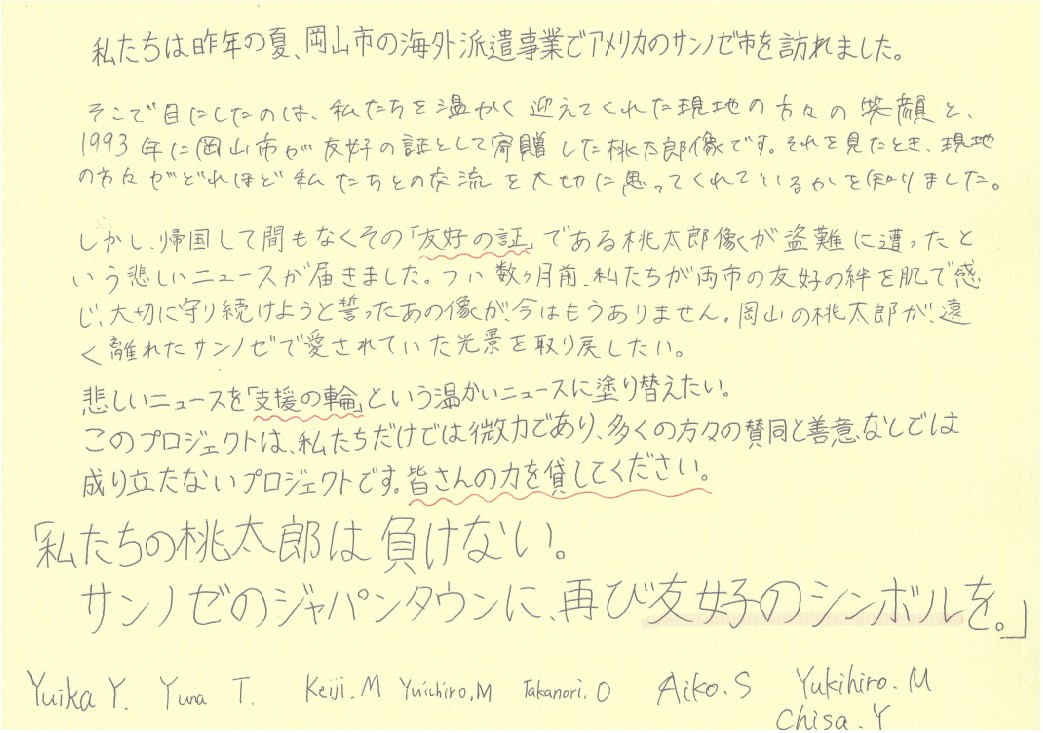 私たちは昨年の夏、岡山市の海外派遣事業でアメリカのサンノゼ市を訪れました。
そこで目にしたのは、私たちを温かく迎えてくれた現地の方々の笑顔と、
1993年に岡山市が友好の証として寄贈した桃太郎像です。それを見たとき、現地
の方々がどれほど私たちとの交流を大切に思ってくれているかを知りました。
しかし、帰国して間もなくその「友好の証」である桃太郎像が盗難に遭ったと
いう悲しいニュースが届きました。つい数ヶ月前、私たちが両市の友好の絆を肌で感
じ、大切に守り続けようと誓ったあの像が、今はもうありません。岡山の桃太郎が、遠
く離れたサンノゼで愛されていた光景を取り戻したい。
悲しいニュースを「支援の輪」という温かいニュースに塗り替えたい。
このプロジェクトは、私たちだけでは微力であり、多くの方々の賛同と善意なしでは
成り立たないプロジェクトです。皆さんの力を貸してください。
「私たちの桃太郎は負けない。
サンノゼのジャパンタウンに、再び友好のシンボルを。」
Yuika Y. Yuna T. Keiji.M Yuichiro.M Takanori.O Aiko.S Yukihiro.M
Chisa.Y